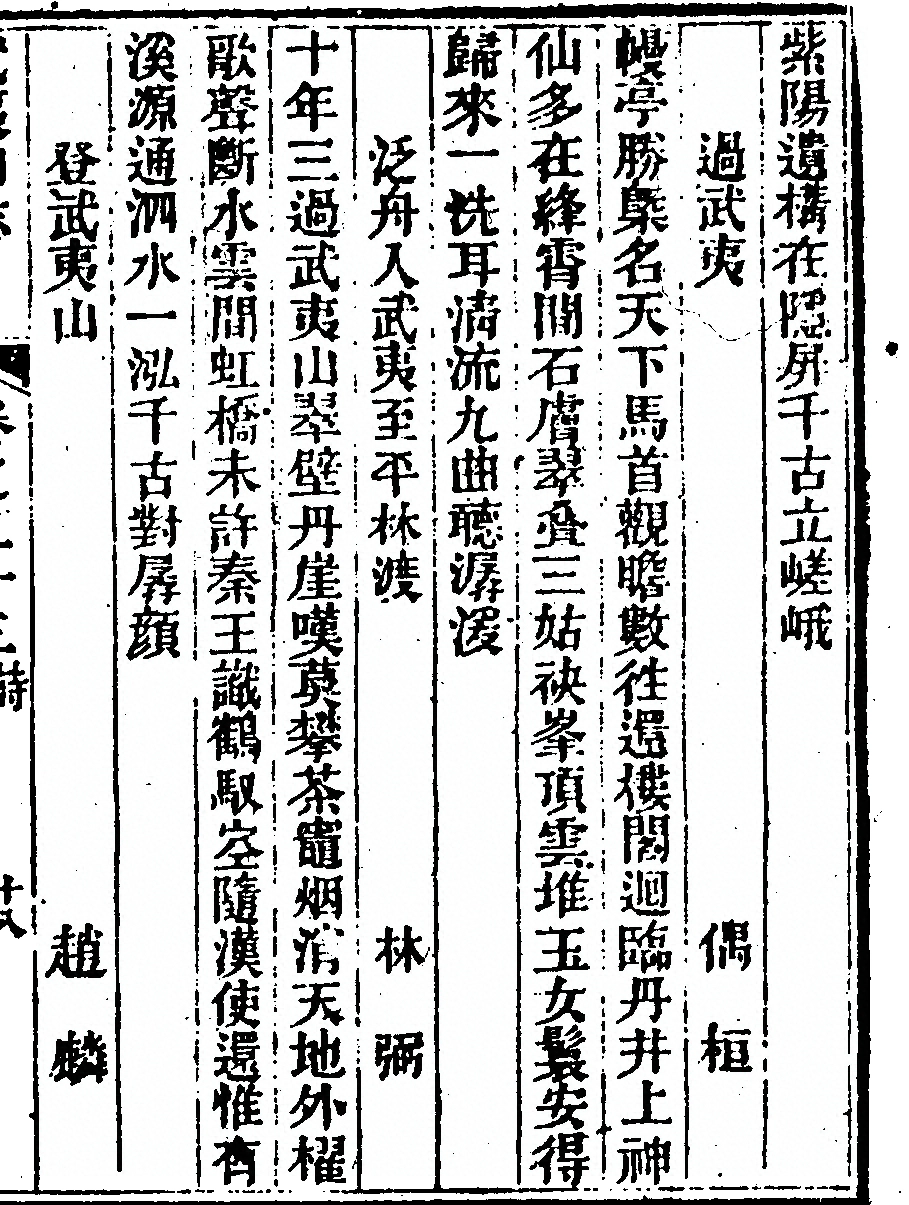 紫陽遺構在隠屏千古立嵯峨
過武夷　偶桓
幔亭勝槩名天下馬首觀瞻數徃還樓閣迴臨丹井上神
仙多在絳霄間石膚翠疊三姑袂峯頂雲堆玉女鬟安得
歸來一洗耳清流九曲聽潺湲
泛舟入武夷至平林渡　林弼
十年三過武夷山翠壁丹崖嘆莫攀茶竈烟消天地外櫂
歌聲斷水雲間虹橋未許秦王識鶴馭空隨漢使還惟有
溪源通泗水一泓千古對孱顔
登武夷山　趙麟
十八